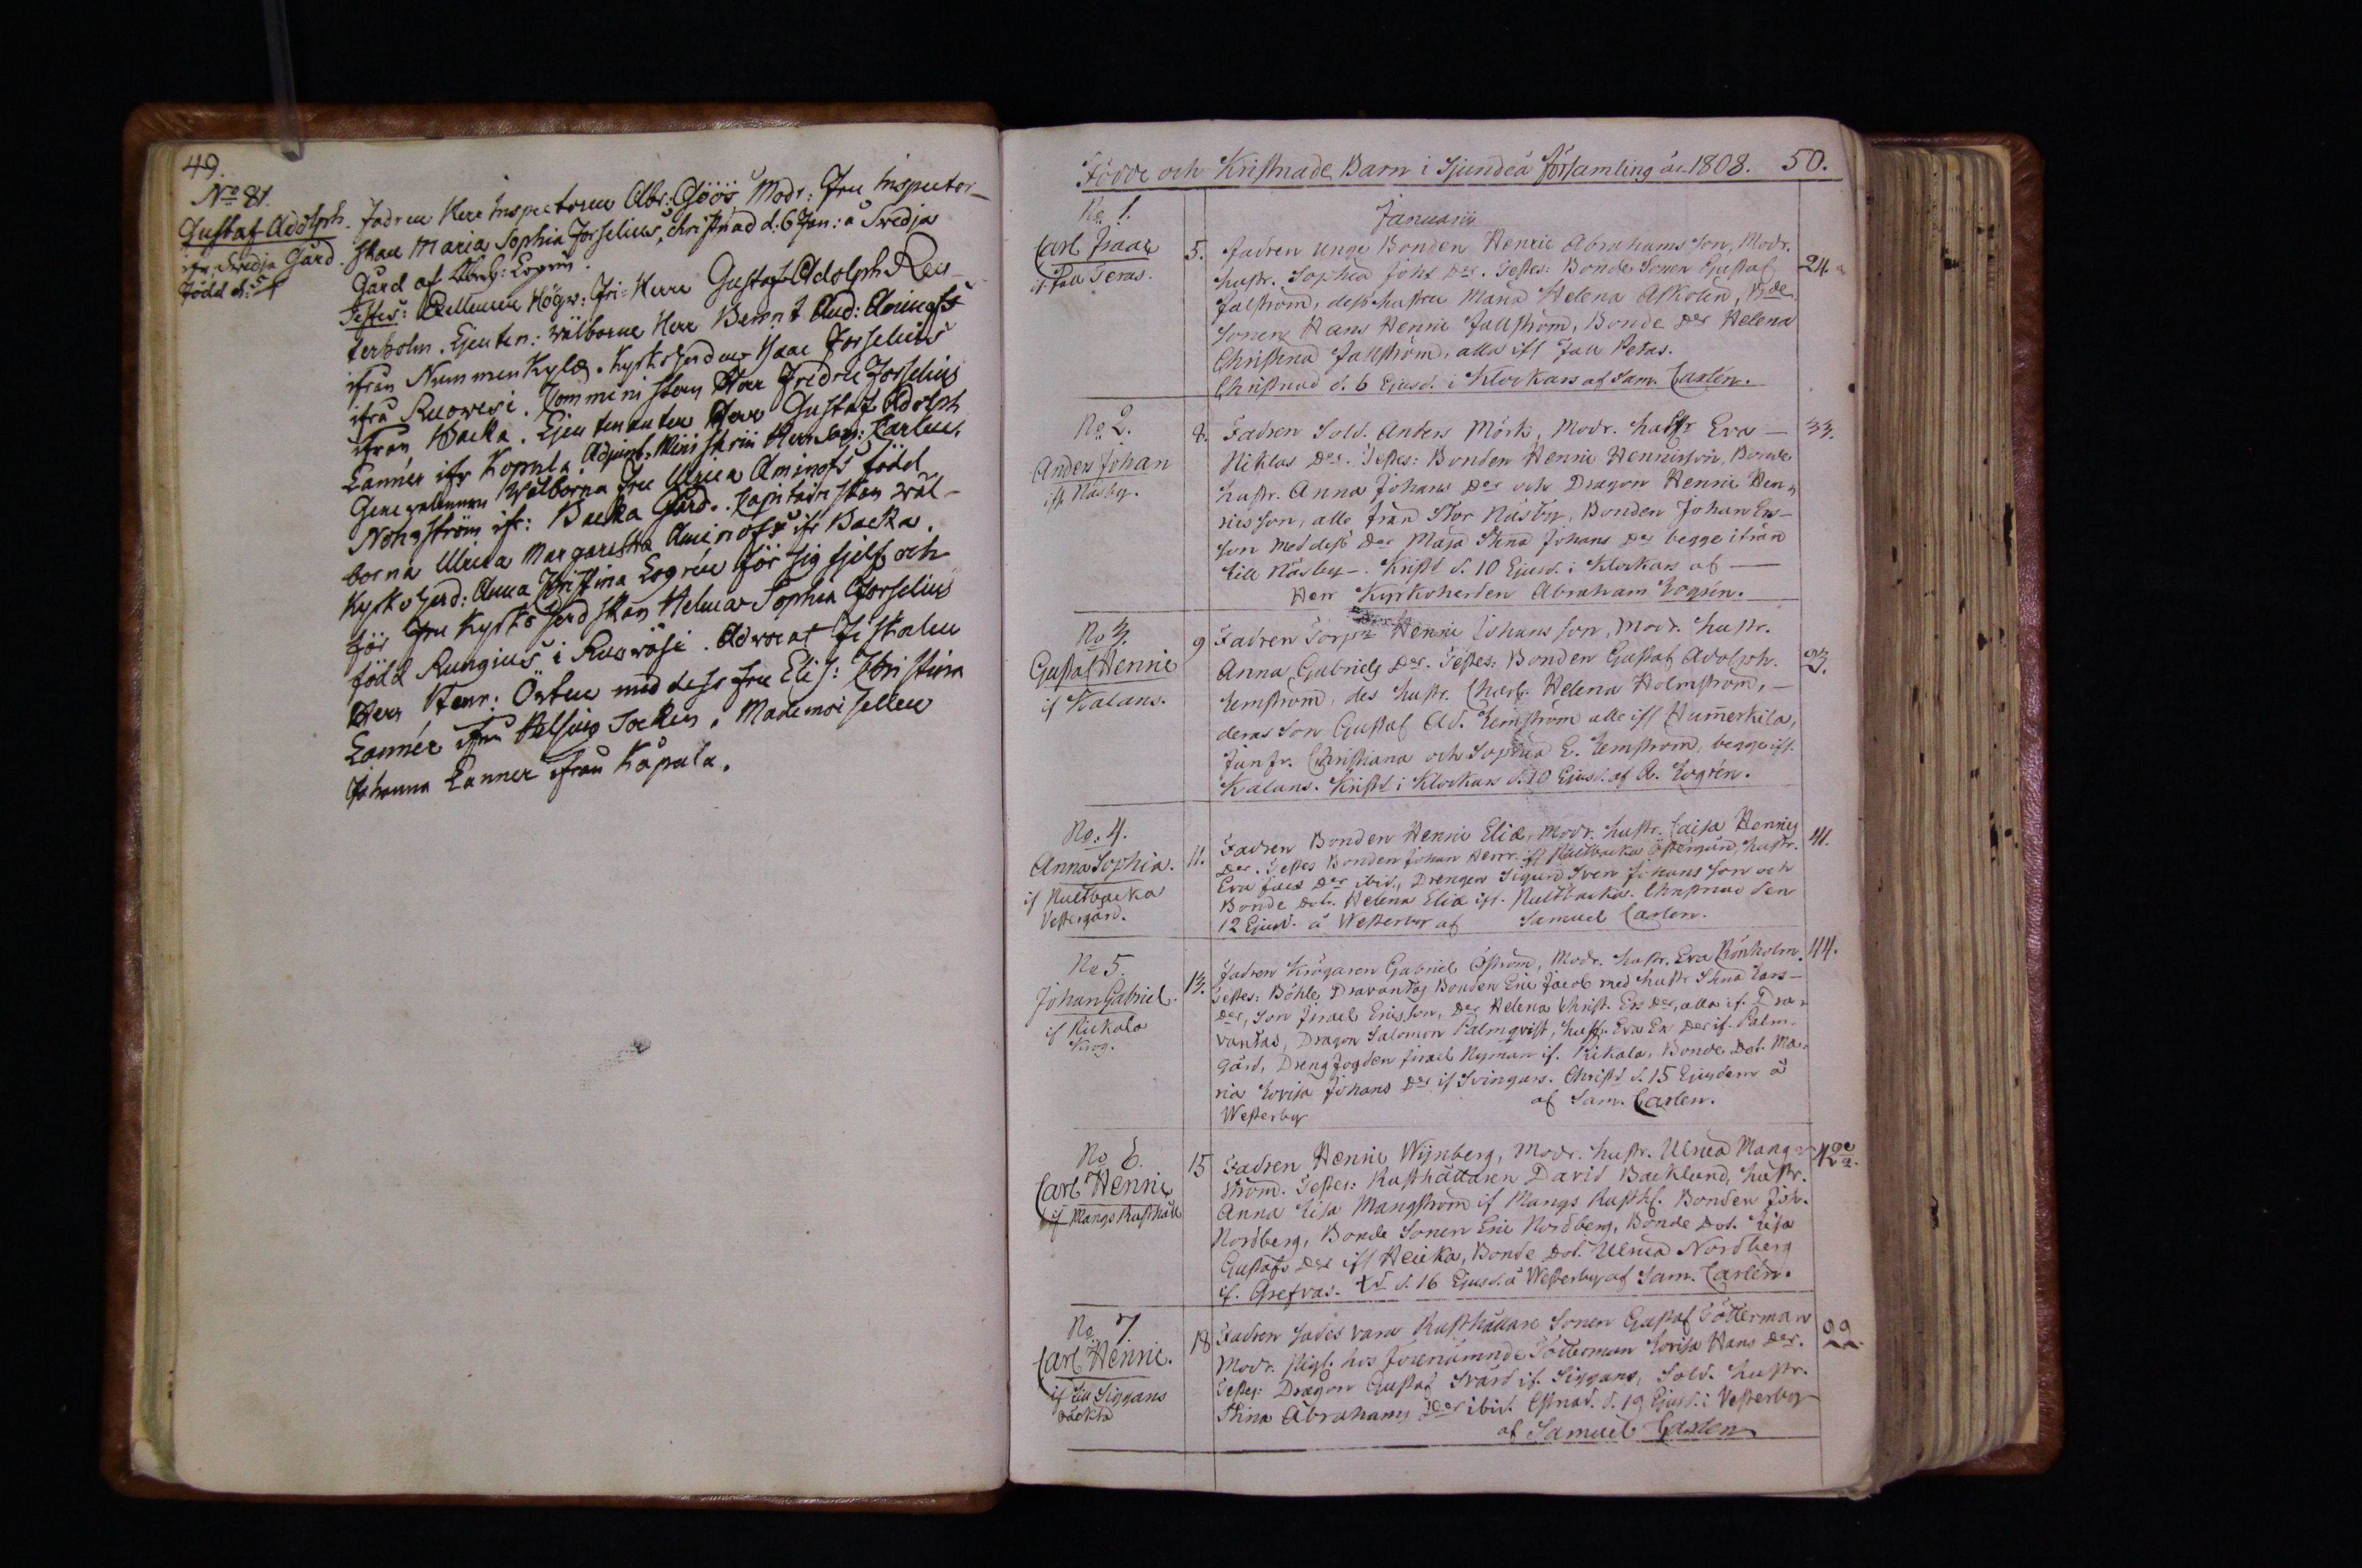 49.
No 81.
Gustaf Adolph. Fadren Herr Inspectoren Abr: Göös Modr: Fru Inspector-
ifr: Svedja Gård. skan Maria Sophia Forselius, Christnad d: 6 Jan: å Svedja
Född d:
Gård af Abrh: Logrén.
Testes: Högw: Fri-Herre Gustaf Adolph Reu-
terholm. Ljeuten: wälborne Herr Bernt Aminofs
ifrån Nummenkylä. Kyrkoherden Isaac Forselius
ifrån Ruowesi. Herr Fredric Forselius
ifrån Backa. Ljeutenanten Herr Gustaf Adolph
Lannér ifr Kopula. Adjunct: Ministerii Herr Sam: Carlén.
Wälborna Fru Ulrica Aminofs född
Nohrström ifr: Backa Gård. Capitainskan wäl-
borna Ulrica Margaretha Aminofs ifr Backa.
Kyrkoherd: Anna Christina Logrén för sig sjelf och
för Fru Kyrkoherdskan Helena Sophia Forselius
född Rungius i Ruowäsi. Advocat Fiskalen
Herr Henr: Örten med dess Fru Elis: Christina
Lannér ifrån Helsing Socken. Mademoisellen
Johanna Lanner ifrån Kåpula.
Födde och Kristnade Barn i Sjundeå församling år 1808. 50.
Januarii
No 1.
Carl Isaac
5. Fadren unge Bonden Henric Abrahams son, Modr. 24.
hustr. Sophia Johs Der. Testes: Bonde Sonen Gustaf
Falström, dess hustru Maria Helena Askolin, Bde
Sonen Hans Henric Fallström, Bonde Der Helena
Christina Fallström, alla ifr Fall Petas.
Christnad d. 6 Ejusd. i Klockars af Sam. Carlén.
No 2.
Anders Johan
ifr Näsby.
8. Fadren Sold. Anders Mörk, Modr. hustr Eva — 33.
Niklas Der. Testes: Bonden Henric Henricsson, Bonde
hustr. Anna Johans Der och Dragon Henric Hen-
ricsson, alle från Stor Näsby, Bonden Johan Ers-
son med dess Der Maja Stina Johans Der begge ifrån
Lill Näsby. Kristd d. 10 Ejusd. i Klockars af —
Herr Kyrkoherden Abraham Logrén.
No 3.
Gustaf Henric
if Kalans.
9 Fadren Torpr Henric Johans son, Modr. hustr.
Anna Gabriels Der. Testes: Bonden Gustaf Adolph. 23.
Lemström, des hustr. Charl. Helena Holmström, —
deras Son Gustaf Ad. Lemström alle ifr Humerkila,
Junfr. Christiana och Sophia E. Lemström, begge ifr.
Kalans. Kristd i Klockars d. 10 Ejusd. af A. Logrén.
No: 4.
Anna Sophia.
if Kultbacka
Vestergård.
11. Fadren Bonden Henric Eliæ, Modr. hustr. Caisa Henrics 41.
Der. Testes Bonden Johan Henr. ifr Kultbacka Östergård, hustr.
Eva Der ibid., Drengen Sigurd Sven Johans son och
Bonde Dotr. Helena Eliæ ifr. Kultbacka. Christnad den
12 Ejusd. å Westerby af Samuel Carlen.
No 5.
Johan Gabriel.
if Kickala
Krog.
13. Fadren Krögaren Gabriel Öström, Modr. hustr. Eva Rönholm. 44.
Testes: Böhle, Dravantas Bonden Eric Jacob med hustr Stina Lars-
Der, Son Israel Ericsson, Der Helena Christ. Ers Der, alla if. Dra-
vantas, Dragon Salomon Palmqvist, hustr. Eva Ers Der if. Palm-
gård, Drengfogden Israel Nyman if. Kikala, Bonde Dot. Ma-
ria Lovisa Johans Der if Svingars. Christd d. 15 Ejusdem å
Westerby af Sam. Carlen.
No 6.
Carl Henric
if Mangs Rusthåll
15 Fadren Henric Wijnberg, Modr. hustr. Ulrica Mang-
ström. Testes: Rusthållaren David Backlund, hustr.
Anna Lisa Mangström if Mangs Rusth. Bonden Joh.
Nordberg, Bonde Sonen Eric Nordberg, Bonde Dot. Lisa
Gustafs Der ifr Heicka, Bonde Dot. Ulrica Nordberg
if. Grefvas. Xd d. 16 Ejusd. å Westerby af Sam. Carlén.
No 7.
Carl Henric.
if Siggans
18 Fadren sades vara Rusthållare Sonen Gustaf Sötterman 22.
Modr. Pigl. hos förenämnde Sötterman Lovisa Hans Der.
Testes: Dragon Gustaf Svärd if. Siggans, Sold. hustr.
Stina Abrahams Der ibid. Cstnad. d. 19 Ejusd. i Vesterby
af Samuel Carlen